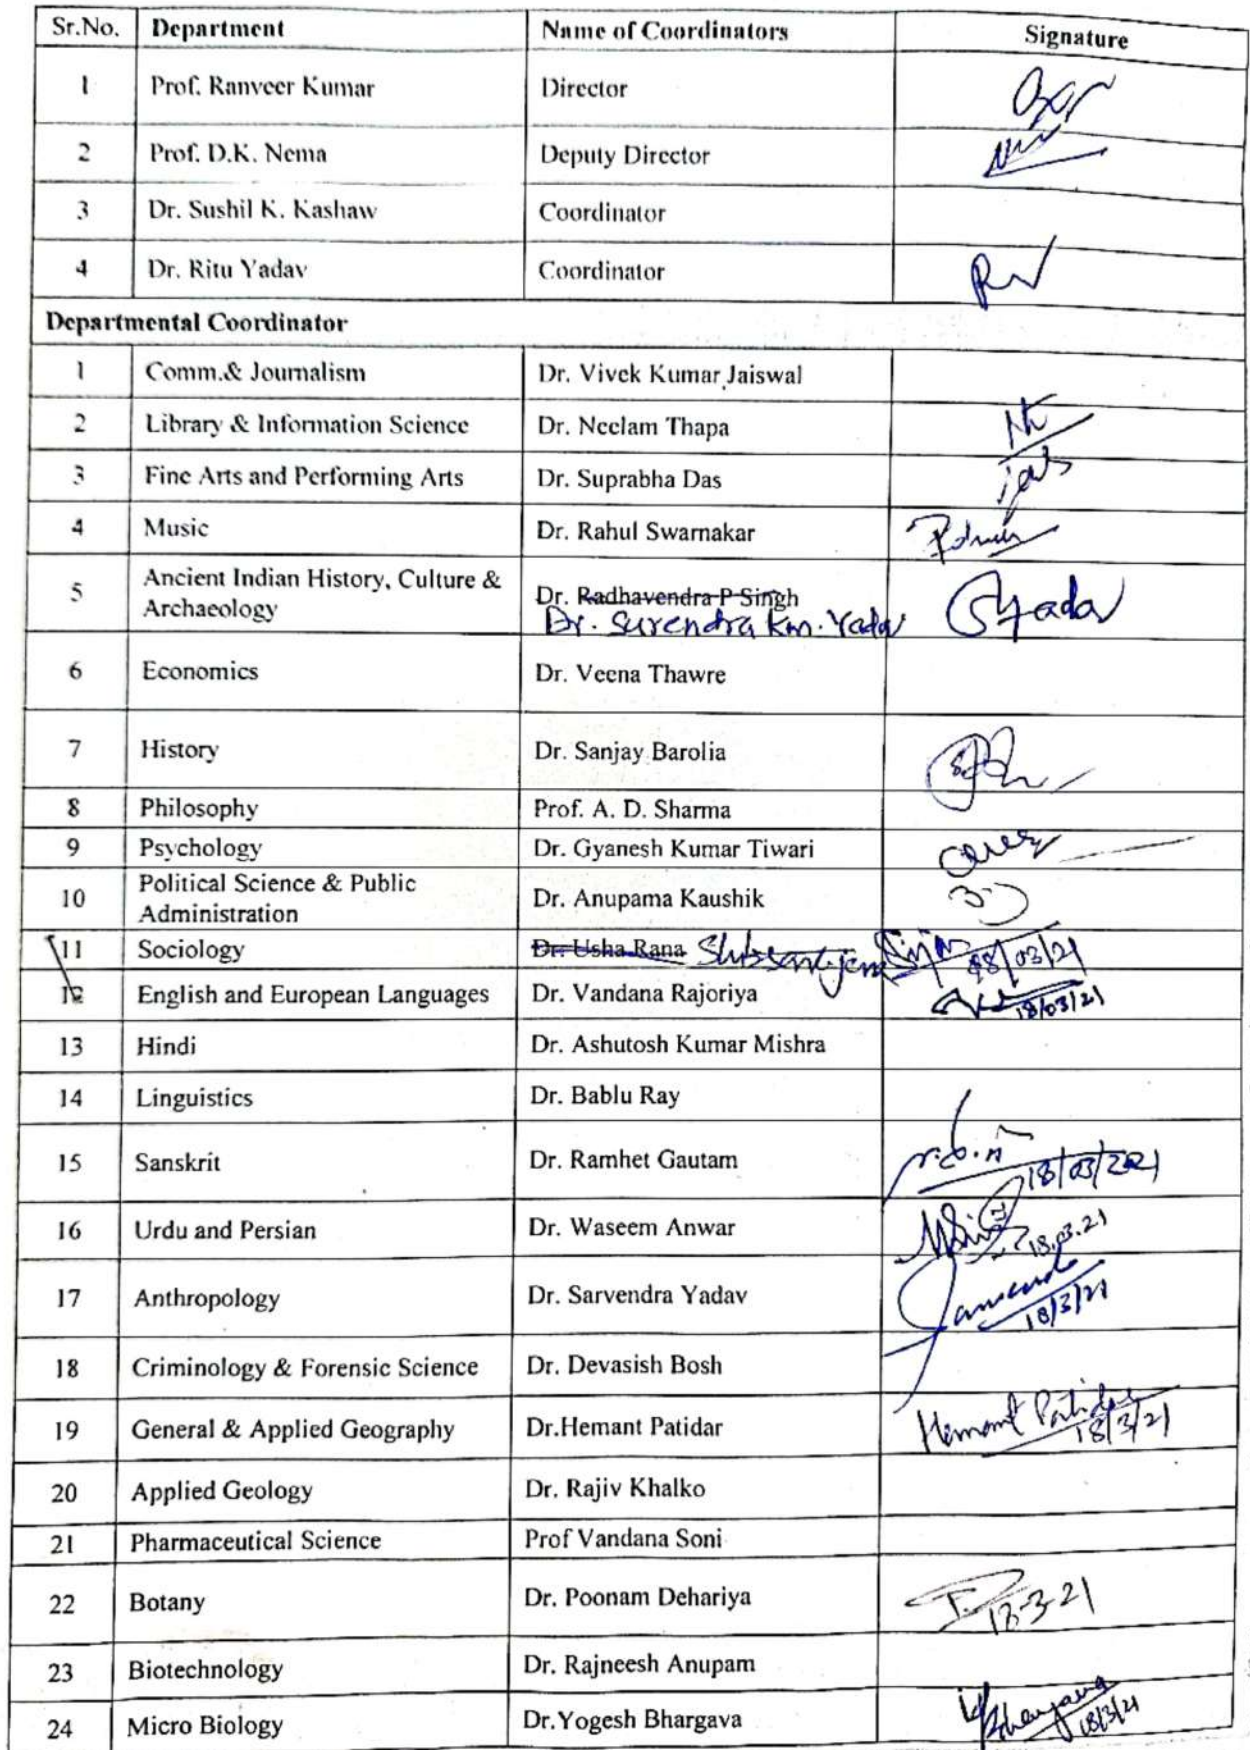 Sr.No. Department Name of Coordinators Signature
1 Prof. Ranveer Kumar Director
2 Prof. D.K. Nema Deputy Director
3 Dr. Sushil K. Kashaw Coordinator
4 Dr. Ritu Yadav Coordinator
Departmental Coordinator
1 Comm.& Journalism Dr. Vivek Kumar Jaiswal
2 Library & Information Science Dr. Neelam Thapa
3 Fine Arts and Performing Arts Dr. Suprabha Das
4 Music Dr. Rahul Swarnakar
5 Ancient Indian History, Culture & Archaeology Dr. Radhavendra P Singh
Dr. Surendra Km. Yadav Yadav
6 Economics Dr. Veena Thawre
7 History Dr. Sanjay Barolia
8 Philosophy Prof. A. D. Sharma
9 Psychology Dr. Gyanesh Kumar Tiwari
10 Political Science & Public Administration Dr. Anupama Kaushik
11 Sociology Dr. Usha Rana 18/03/21
12 English and European Languages Dr. Vandana Rajoriya 18/03/21
13 Hindi Dr. Ashutosh Kumar Mishra
14 Linguistics Dr. Bablu Ray
15 Sanskrit Dr. Ramhet Gautam 18/03/2021
16 Urdu and Persian Dr. Waseem Anwar 18.03.21
17 Anthropology Dr. Sarvendra Yadav 18/3/21
18 Criminology & Forensic Science Dr. Devasish Bosh
19 General & Applied Geography Dr.Hemant Patidar Hemant Patidar 18/3/21
20 Applied Geology Dr. Rajiv Khalko
21 Pharmaceutical Science Prof Vandana Soni
22 Botany Dr. Poonam Dehariya 18-3-21
23 Biotechnology Dr. Rajneesh Anupam
24 Micro Biology Dr.Yogesh Bhargava 18/3/21